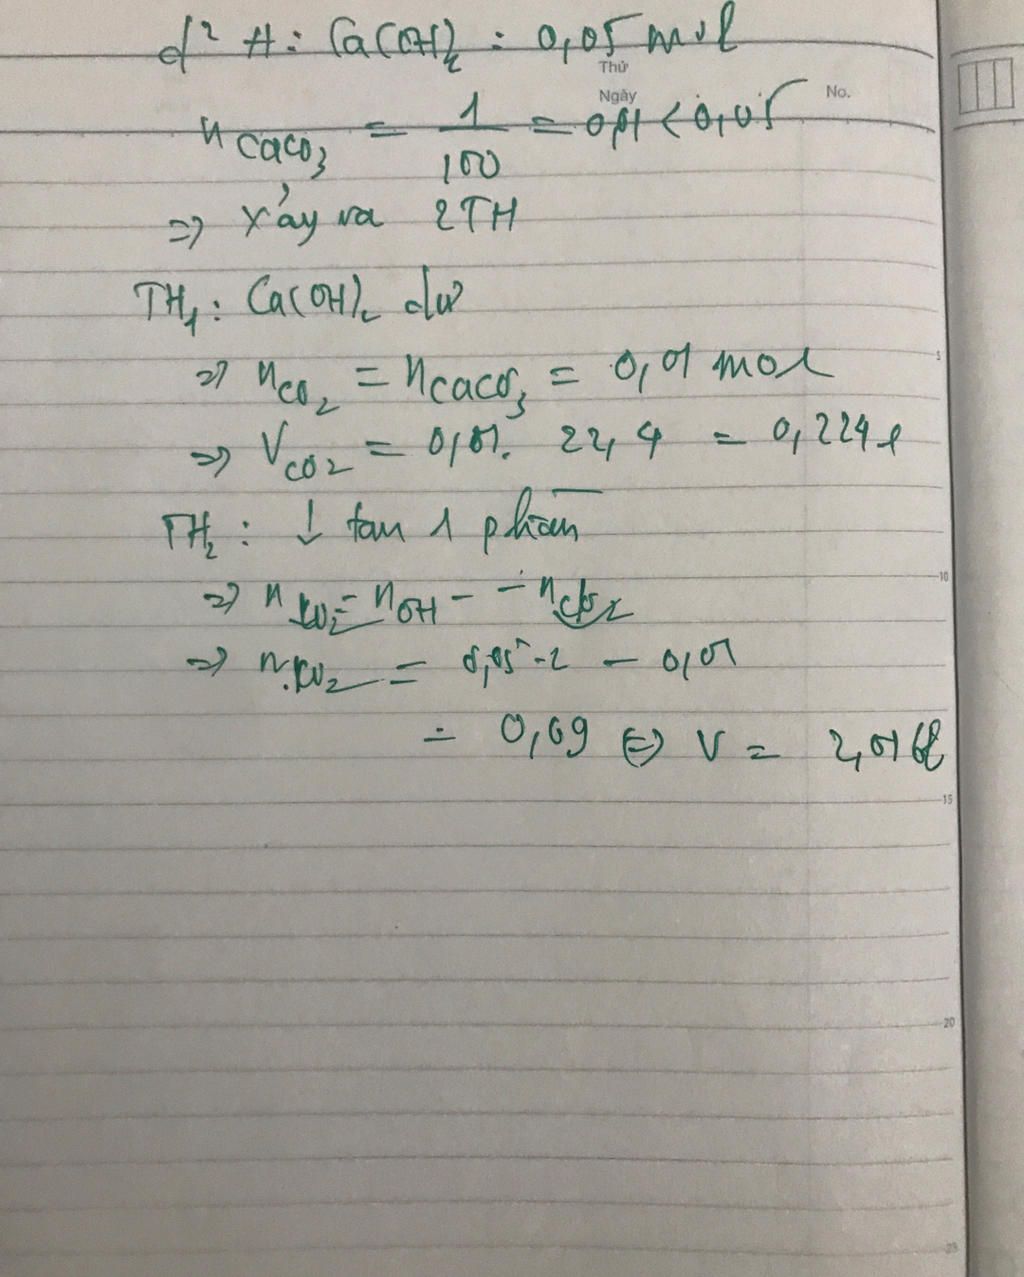 d² A : Ca(OH)₂ : 0,05 mol
Thứ
Ngày
No.
n CaCO₃ = 1/100 = 0,01 < 0,05
=> xảy ra 2TH
TH₁ : Ca(OH)₂ dư
=> n CO₂ = n CaCO₃ = 0,01 mol
5
=> V CO₂ = 0,01. 22,4 = 0,224 l
TH₂ : ↓ tan 1 phần
10
=> n CO₂ = n OH⁻ -
=> n CO₂ = 0,05.2 - 0,01
= 0,09 <=> V = 2,016l
15
20